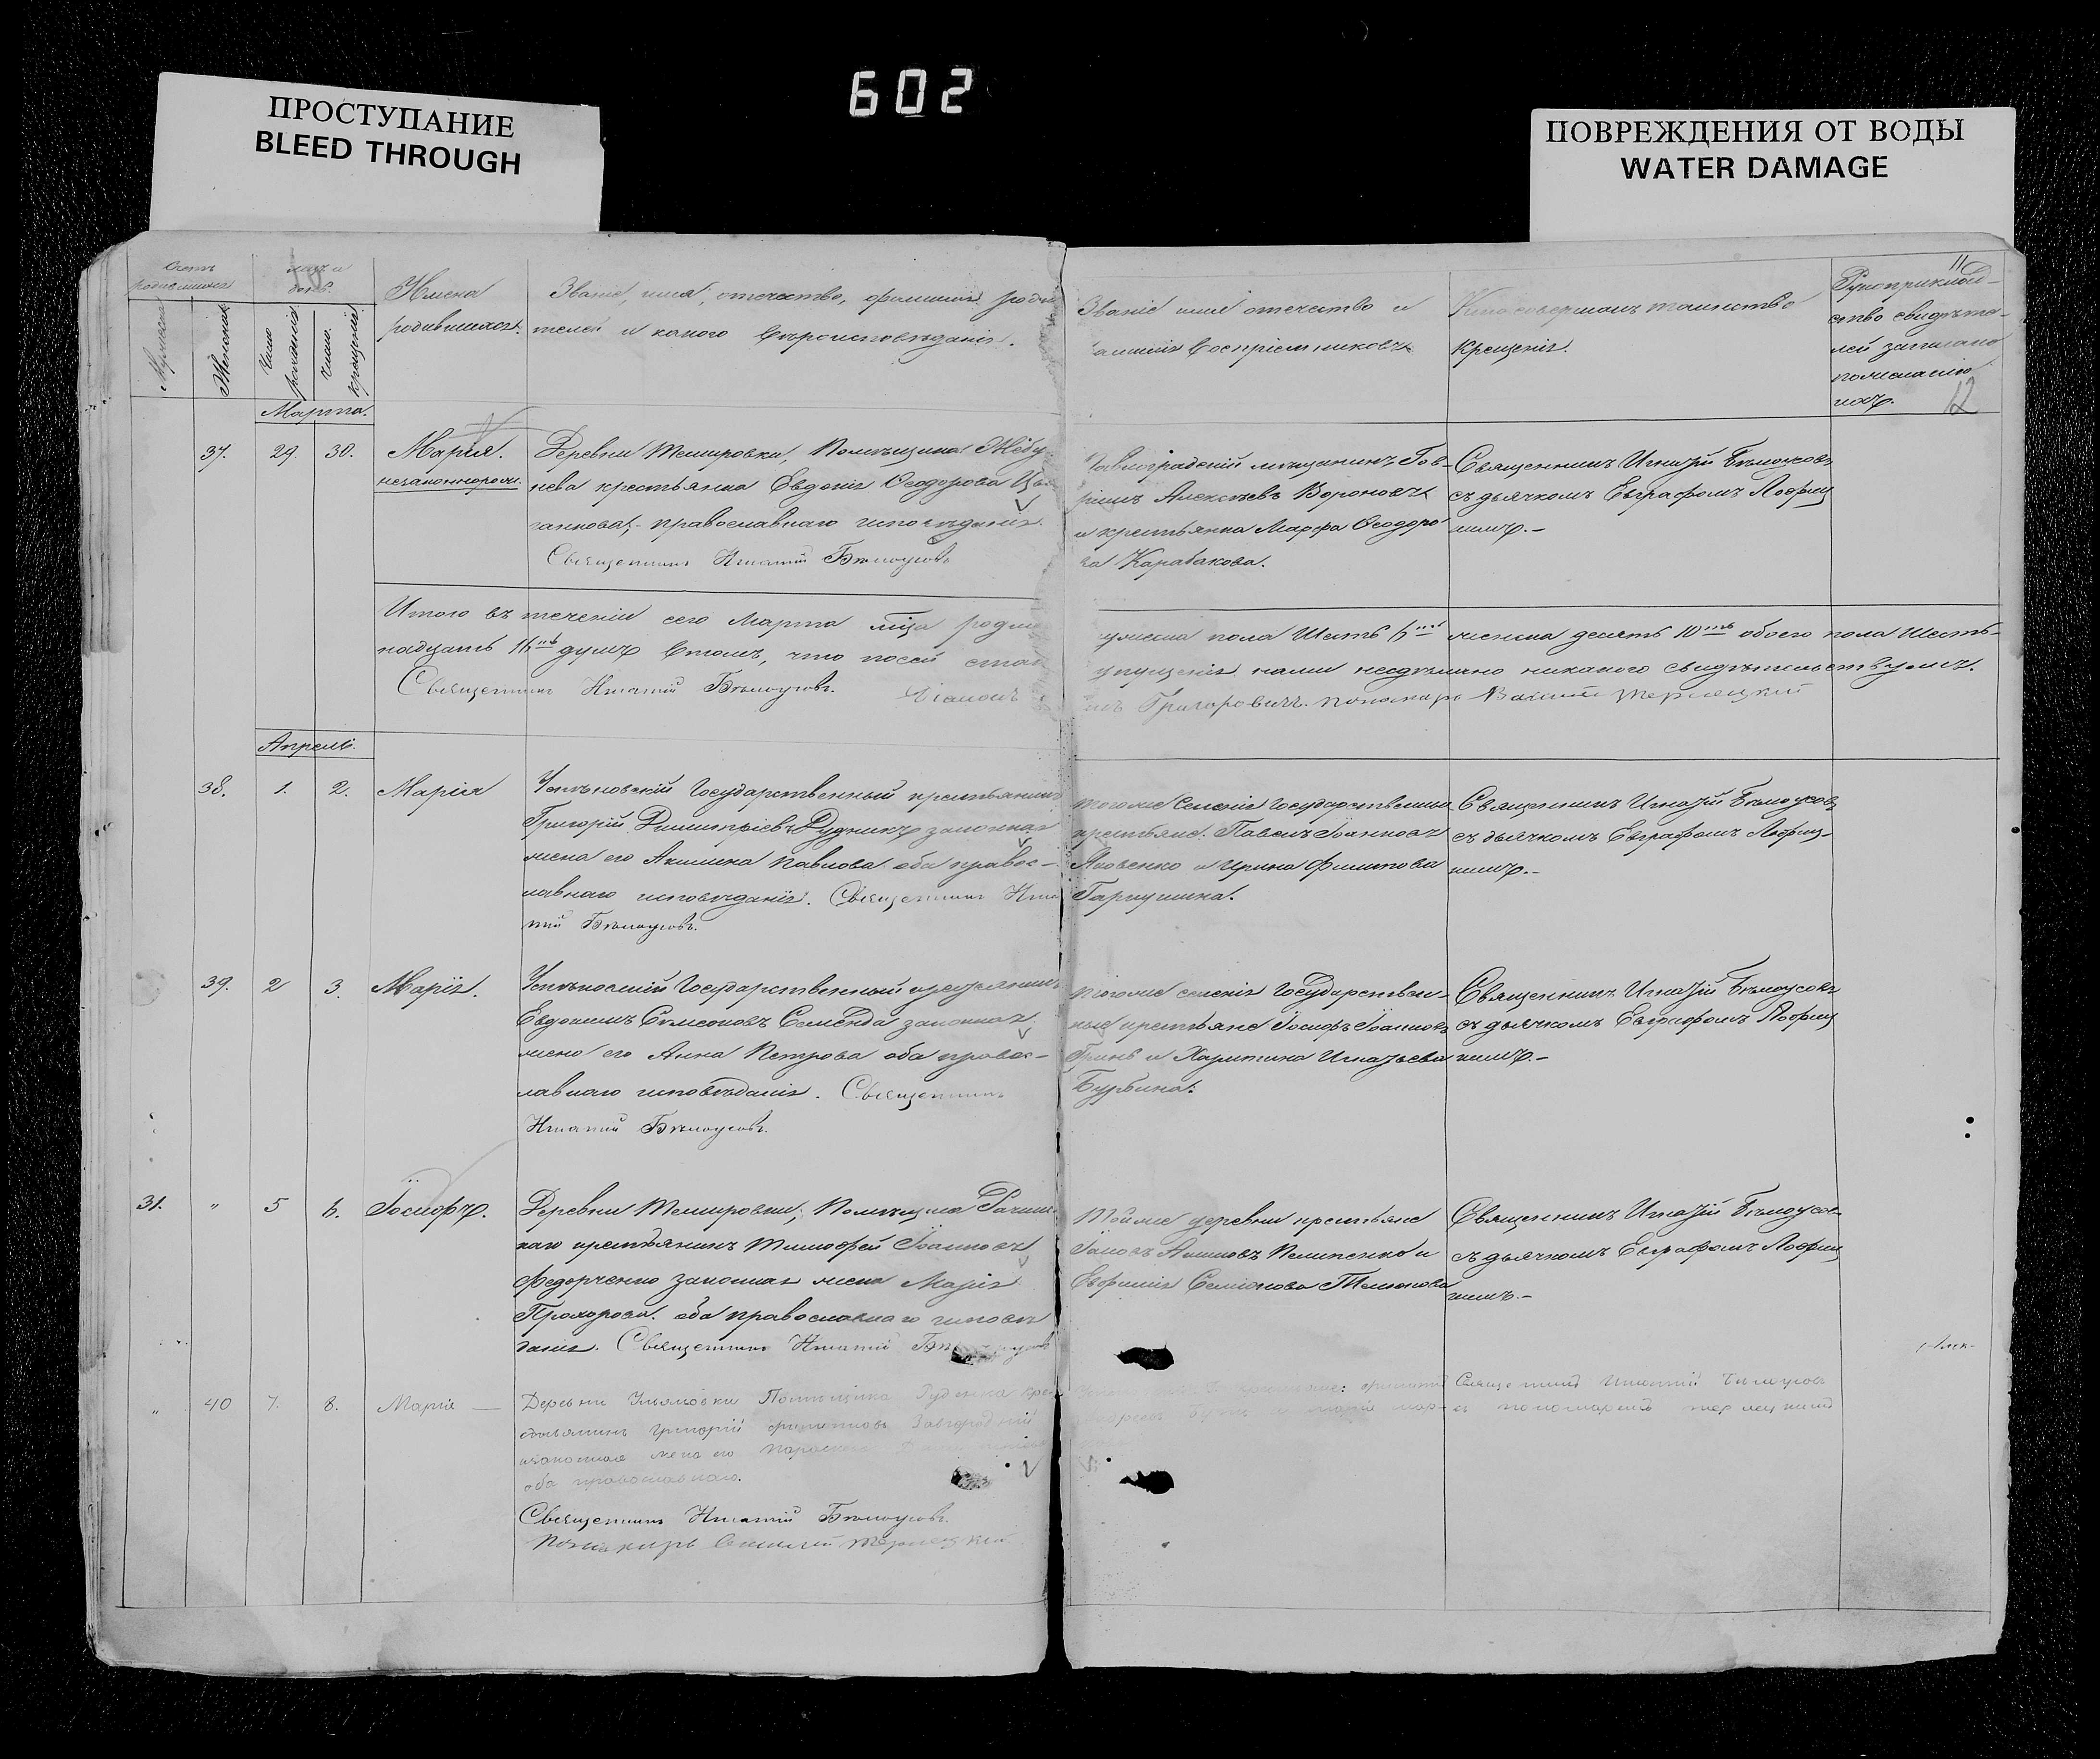 602
ПРОСТУПАНИЕ
BLEED THROUGH
ПОВРЕЖДЕНИЯ ОТ ВОДЫ
WATER DAMAGE
Счетъ
родившихся
день.
Мужеска
Женска
Число рожденія
Число крещенія
Имена
родившихся.
Званіе, имя, отечество, фамилія роди
телей и какого Вѣроисповѣданія.
Званіе имя отечество и
амилія Воспріемниковъ
Кто совершалъ таинство
Крещенія.
Рукоприклад-
ство свидѣте-
лей записано
по желанію
ихъ.
11
12
Марта.
37. 29. 30. Марія.
незаконнорожд.
Деревни Темировки, Помѣщика
нева крестьянка Евдокія Ѳеодорова Цы
ганкова, православнаго исповѣданія.
Священникъ Игнатій Бѣлоусовъ
Павлоградскій мѣщанинъ Гав-
ріилъ Алексѣевъ Вороновъ
и крестьянка Марфа Ѳеодоро
ва Карабакова.
Священникъ Игнатій Бѣлоусовъ
съ дьячкомъ Евграфомъ Лофиц
кимъ.-
Итого въ теченіи сего Марта мца родив
надцать 16ть душъ Въ томъ, что посей стат
Священникъ Игнатій Бѣлоусовъ. Діаконъ
мужеска пола Шесть 6ть женска десять 10ть обоего пола Шесть-
упущенія нами неодѣлано никакого свидѣтельствуемъ.
Григоровичъ. Пономарь Василій Терлецкий
Апрель.
38. 1. 2. Марія
Успѣновскій Государственный крестьянинъ
Григорій Димитріевъ Рудникъ законная
жена его Акилина Павлова оба правос-
лавнаго исповѣданія. Священникъ Игна
тій Бѣлоусовъ.
того же Селенія Государственные
крестьяне. Павелъ Іоанновъ
Яковенко и Ирина Филипова
Гаркушина.
Священникъ Игнатій Бѣлоусовъ
съ дьячкомъ Евграфомъ Лофиц-
кимъ.-
39. 2 3. Марія.
Успѣновскій Государственный крестьянинъ
Евдокимъ Симеоновъ Семенда законная
жена его Анна Петрова оба правос-
лавнаго исповѣданія. Священникъ
Игнатій Бѣлоусовъ.
того же селенія Государствен-
ные крестьяне Іосифъ Іоанновъ
Гринь и Харитина Игнатьева
Бурбина.
Священникъ Игнатій Бѣлоусовъ
съ дьячкомъ Евграфомъ Лофиц
кимъ.-
31. " 5 6. Іосифъ.
Деревни Темировки, Помѣщика
каго крестьянинъ Тимофей Іоанновъ
Федорченко законная жена Марія
Прохорова. оба православнаго исповѣ
данія. Священникъ Игнатій
Тойже деревни крестьяне
Іаковъ Пелипенко и
Евфимія Семіонова
Священникъ Игнатій Бѣлоусов
съ дьячкомъ Евграфомъ Лофиц
кимъ.-
" 40 7. 8. Марія
Деревни Помѣщика
Григорій Филиповъ Завгородній
законная жена его
оба православнаго.
Священникъ Игнатій Бѣлоусовъ.
Пономарь Василій Терлецкій
Священникъ Игнатій Бѣлоусовъ
съ пономаремъ Терлецкимъ